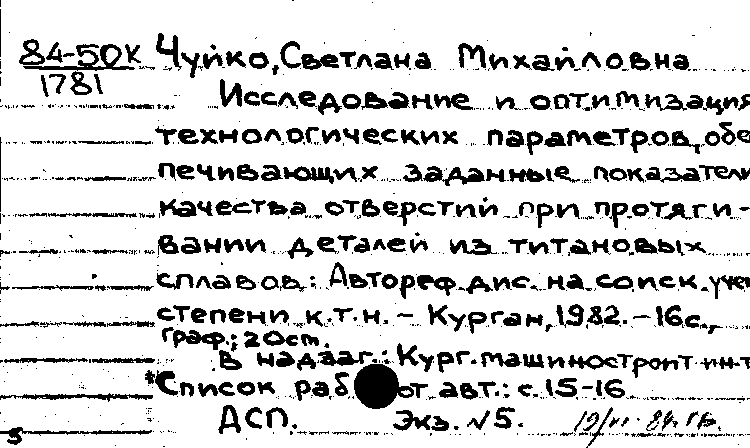 84-50К
1781
Чуйко, Светлана Михайловна
Исследование и оптимизация
технологических параметров, обе
печивающих заданные показатели
качества отверстий при протяги-
вании деталей из титановых
сплавов: Автореф. дис. на соиск. учен
степени к.т.н. – Курган, 1982. – 16с.,
граф.; 20 см.
В надзаг.: Кург. машиностроит. ин-т
*Список работ авт.: с. 15-16
ДСП. Экз. №5.
5